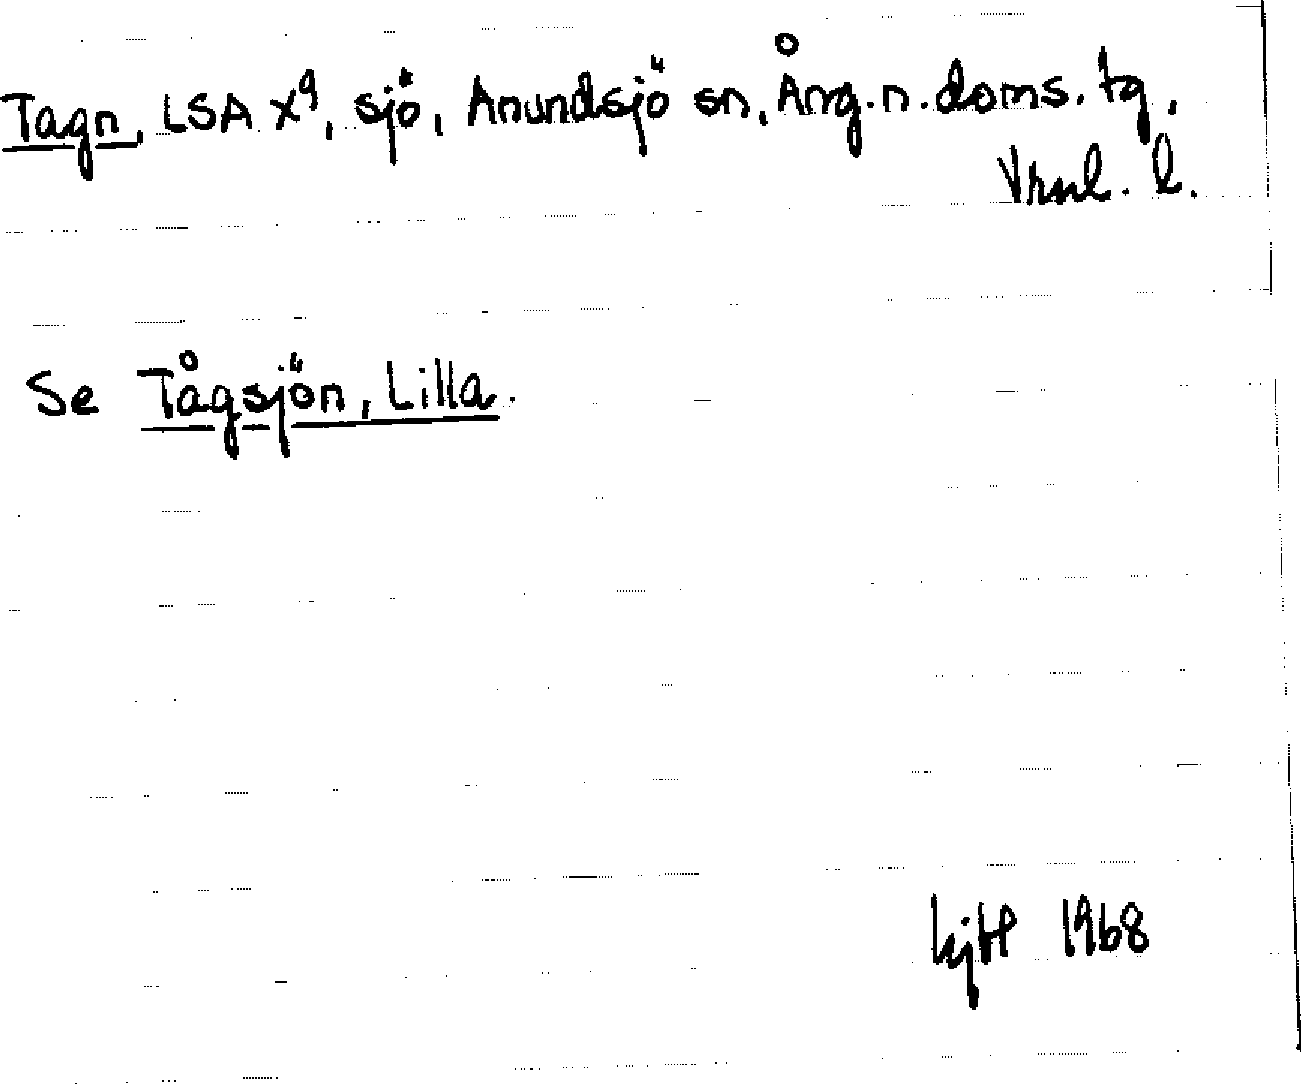 Tagn, LSA X⁹, sjö, Anundsjö sn, Ång.n.doms.tg,
Vrnl. l.
Se Tågsjön, Lilla.
1968